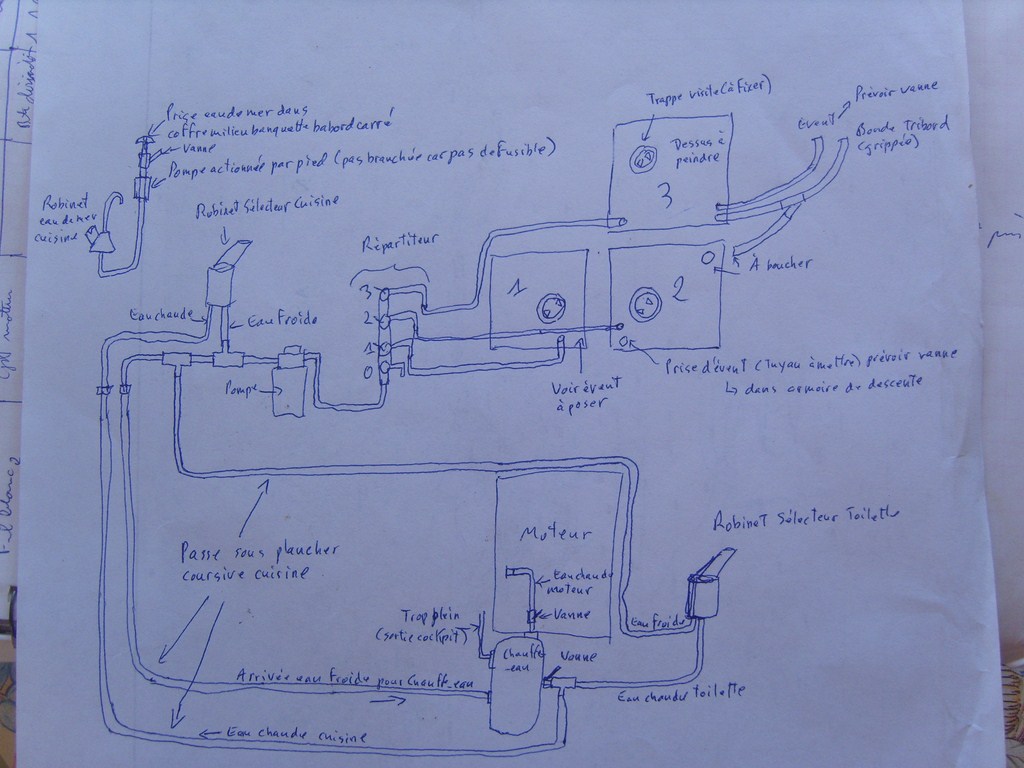 Prise eau de mer dans
coffre milieu banquette babord carré
Vanne
Pompe actionnée par pied (pas branchée car pas de fusible)
Robinet
eau de mer
cuisine
Robinet Sélecteur Cuisine
Eau chaude
Eau froide
Pompe
Répartiteur
3
2
1
0
Trappe visite (à fixer)
Dessus à
peindre
3
Event
Prévoir vanne
Bonde Tribord
(grippée)
1
2
À boucher
Prise d'évent (tuyau à mettre) prévoir vanne
↳ dans armoire de descente
Voir évent
à poser
Passe sous plancher
coursive cuisine
Moteur
Eau chaude
moteur
Vanne
Trop plein
(sortie cockpit)
chauffe
-eau
Vanne
Robinet Sélecteur Toilette
Eau froide
Eau chaude toilette
Arrivée eau froide pour chauffe-eau
Eau chaude cuisine